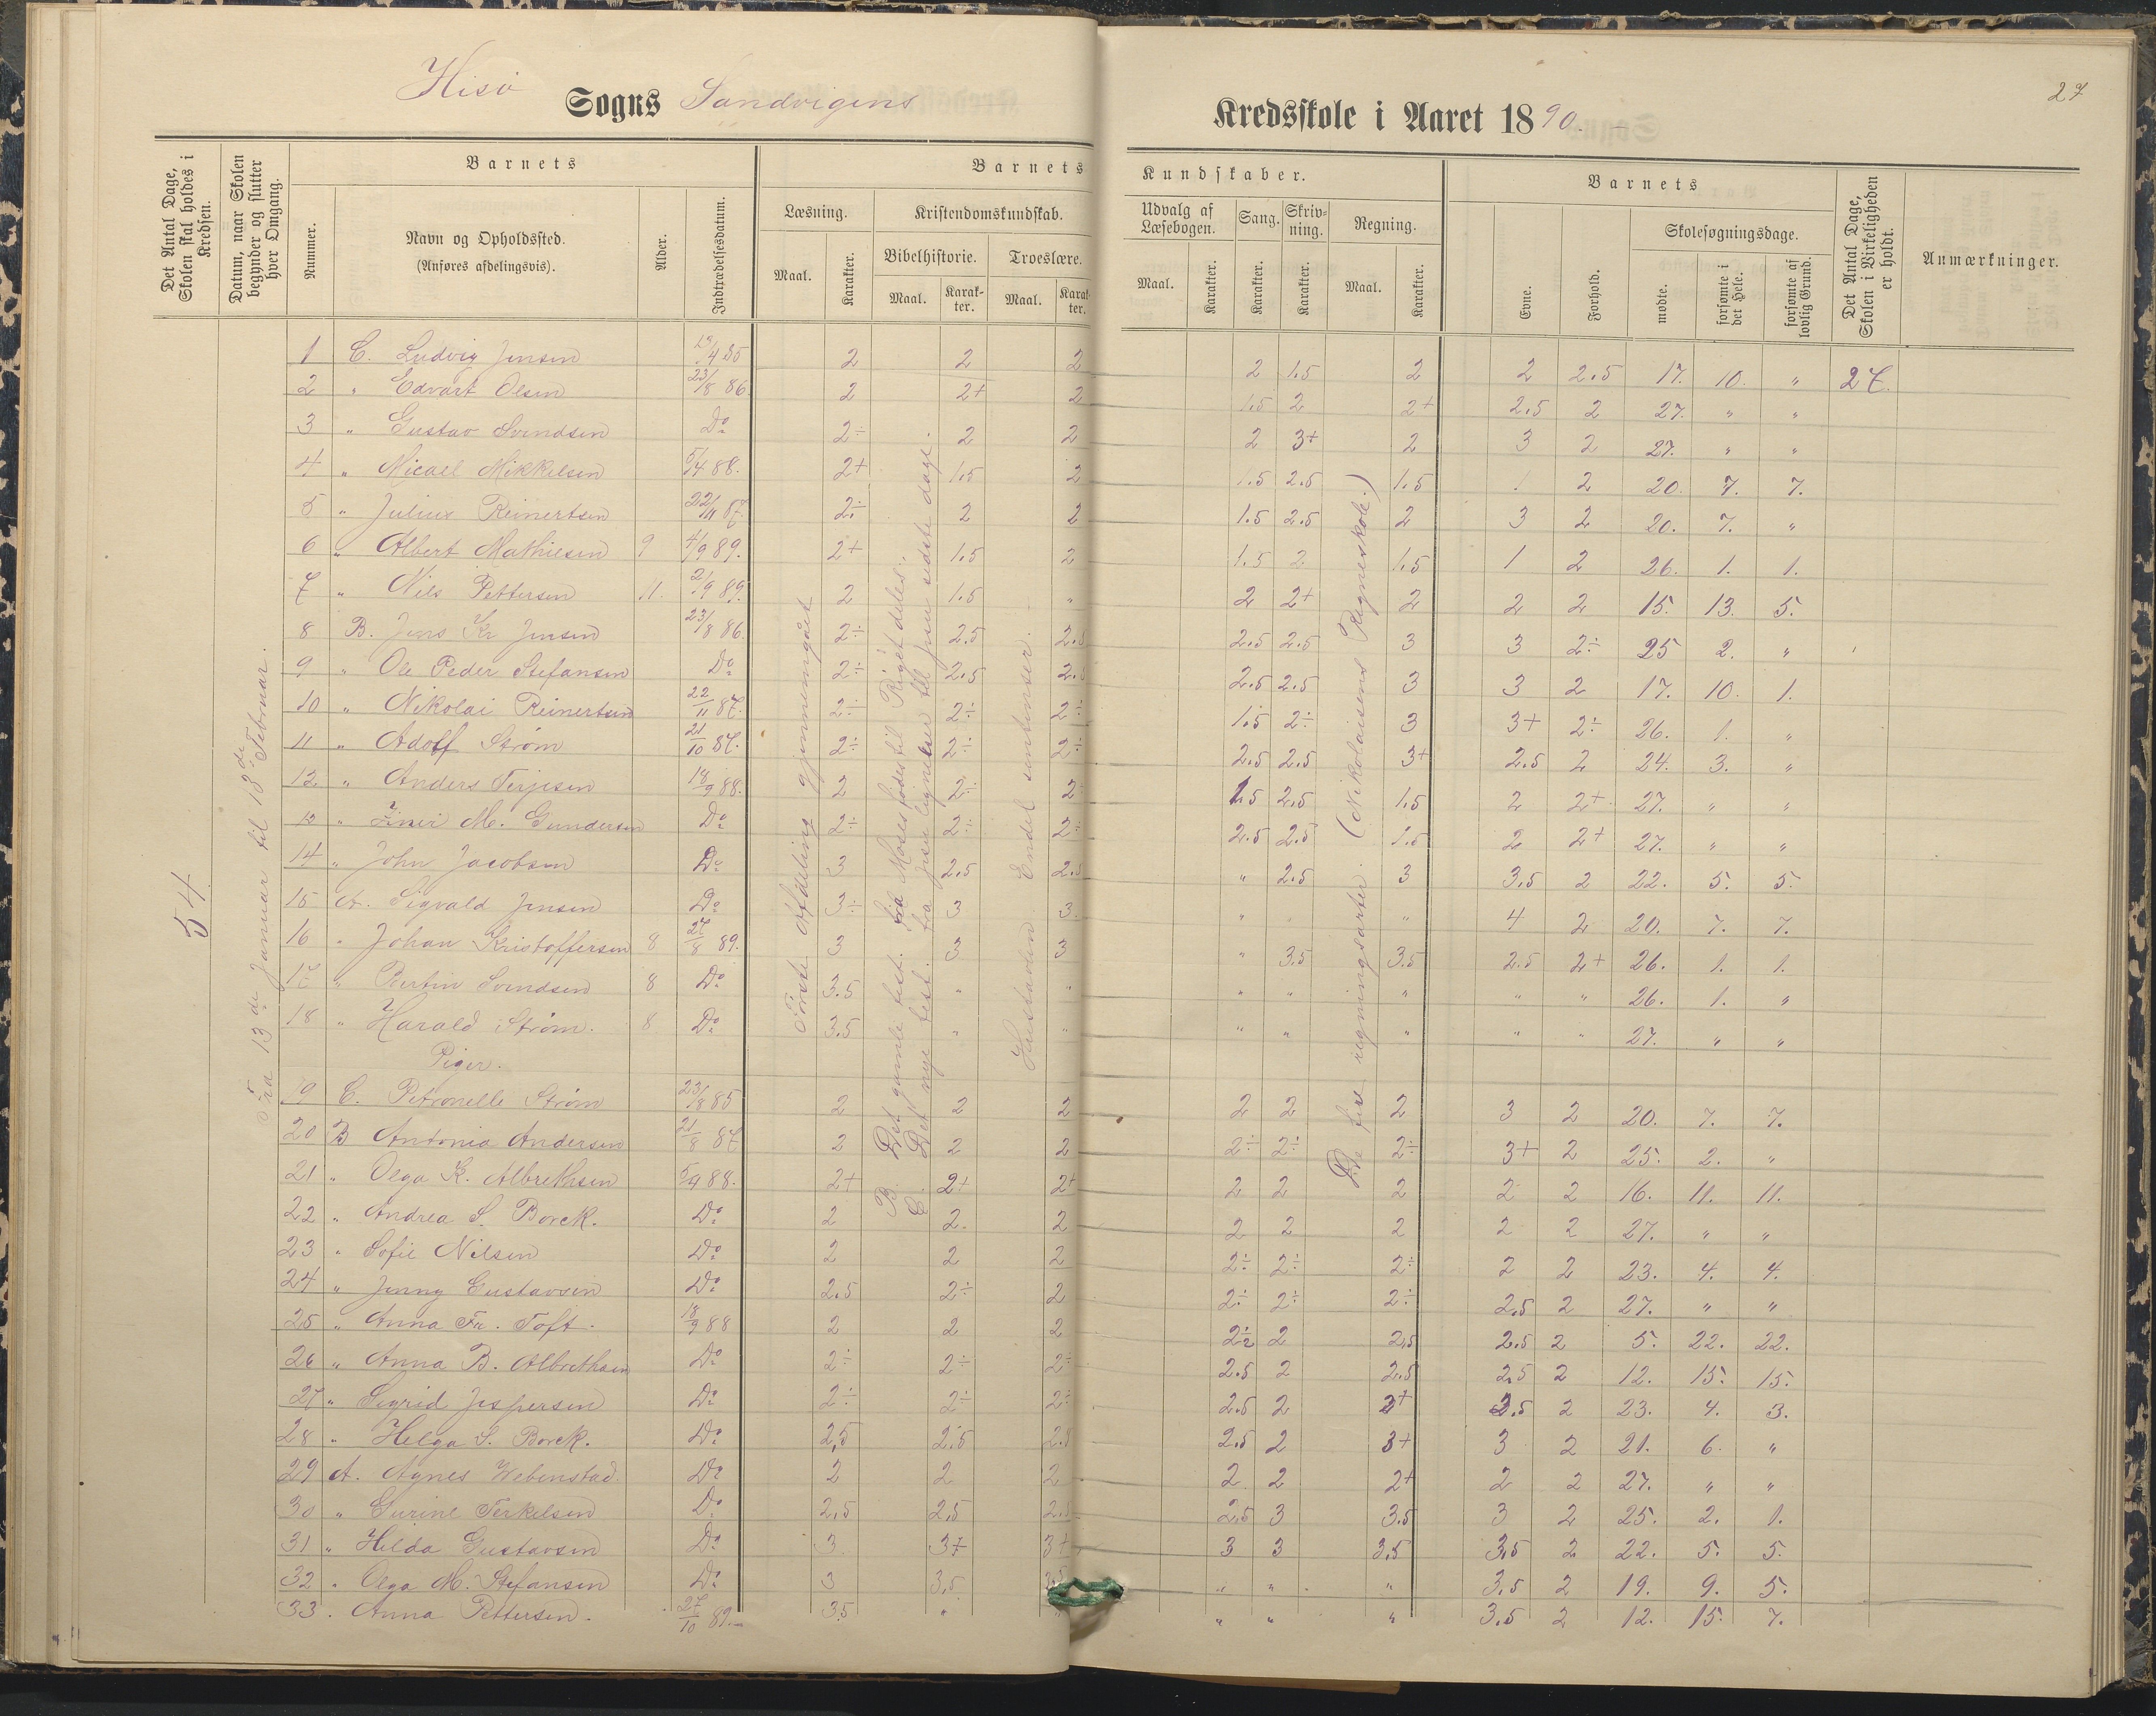 27
Hisö Sogns Sandvigens Kredsskole i Aaret 1890.
Det Antal Dage, Skolen skal holdes i Kredsen.
Datum, naar Skolen begynder og slutter hver Omgang.
Barnets
Nummer.
Navn og Opholdssted.
(Anføres afdelingsvis).
Alder.
Indtrædelsesdatum.
Barnets Kundskaber.
Læsning.
Maal. Karakter.
Kristendomskundskab.
Bibelhistorie. Troeslære.
Maal. Karakter. Maal. Karakter.
Udvalg af Læsebogen.
Maal. Karakter.
Sang. Karakter.
Skrivning. Karakter.
Regning.
Maal. Karakter.
Barnets
Evne. Forhold.
Skolesøgningsdage.
mødte. forsømte i det Hele. forsømte af lovlig Grund.
Det Antal Dage, Skolen i Virkeligheden er holdt.
Anmærkninger.
54
Fra 13de Januar til 18de Februar.
Første Afdeling gjennemgået
B. Det gamle test. fra Moses fødes til Riget deles.
C. Det nye test. fra Jesu lignelser til Jesu sidste dage.
Hustavlen Endel sentenser.
De fire regningsarter. (Nikolaisens Regneskole.)
1 C. Ludvig Jensen 4 85 2 2 2 2 1.5 2 2 2.5 17. 10. " 27.
2 " Edvart Olsen 23/8 86. 2 2+ 2 1.5 2 2+ 2.5 2 27. " "
3 " Gustav Svendsen Do 2÷ 2 2 2 3+ 2 3 2 27. " "
4 " Micael Mikkelsen 5/4 88. 2+ 1.5 2 1.5 2.5 1.5 2 20. 7. 7.
5 " Julius Reinertsen 22/11 87. 2÷ 2 2 1.5 2.5 2 3 2 20. 7. "
6 " Albert Mathiesen 9 4/9 89. 2+ 1.5 2 1.5 2 1.5 1 2 26. 1. 1.
7 " Nils Pettersen 11. 2/9 89. 2 1.5 " 2 2+ 2 2 2 15. 13. 5.
8 B. Jens Kr Jensen 23/8 86. 2÷ 2.5 2.5 2.5 2.5 3 3 2÷ 25 2. "
9 " Ole Peder Stefansen Do 2÷ 2.5 2.5 2.5 2.5 3 3 2 17. 10. 1.
10 " Nikolai Reinertsen 22/11 87. 2÷ 2÷ 2÷ 1.5 2÷ 3 3+ 2÷ 26. 1. "
11 " Adolf Strøm 21/10 87. 2÷ 2÷ 2÷ 2.5 2.5 3+ 2.5 2 24. 3. "
12 " Anders Terjesen 18/9 88. 2 2÷ 2÷ 1.5 2.5 1.5 2 2+ 27. " "
13 " M. Gundersen Do 2÷ 2÷ 2÷ 2.5 2.5 1.5 2 2+ 27. " "
14 " John Jacobsen Do 3 2.5 2.5 " 2.5 3 3.5 2 22. 5. 5.
15 A. Sigvald Jensen Do 3÷ 3 3. " " " 4 2 20. 7. 7.
16 " Johan Kristoffersen 8 27/8 89. 3 3 3 " 3.5 3.5 2.5 2+ 26. 1. 1.
17 " Bertin Svendsen 8 Do 3.5 " " " " " " " 26. 1. "
18 " Harald Strøm. 8 Do 3.5 " " " " " " " 27. " "
Piger.
19 C. Petronelle Strøm 23/8 85 2 2 2 2 2 2 3 2 20. 7. 7.
20 B Antonia Andersen 21/8 87 2 2 2 2÷ 2÷ 2÷ 3+ 2 25. 2. "
21 " Olga K. Albrethsen 5/4 88. 2+ 2+ 2+ 2 2 2 2 2 16. 11. 11.
22 " Andrea S. Borck. Do 2 2. 2 2 2 2 2 2 27. " "
23 " Sofie Nilsen Do 2 2 2 2÷ 2÷ 2÷ 2 2 23. 4. 4.
24 " Jenny Gustavsen Do 2.5 2÷ 2 2÷ 2÷ 2÷ 2.5 2 27. " "
25 " Anna Fr. Toft. 18/9 88 2 2 2 2÷ 2 2.5 2.5 2 5. 22. 22.
26 " Anna B. Albrethsen Do 2÷ 2÷ 2÷ 2.5 2 2.5 2.5 2 12. 15. 15.
27 " Sigrid Jespersen Do 2÷ 2÷ 2÷ 2.5 2 3+ 2.5 2 23. 4. 3.
28 " Helga S. Borck. Do 2,5 2.5 2.5 2.5 2 3+ 3 2 21. 6. "
29 A. Agnes Hebenstad Do 2 2 2 2 2 2+ 2 2 27. " "
30 " Gurine Terkelsen Do 2,5 2,5 2.5 2.5 3 3.5 3 2 25. 2. 1.
31 " Hilda Gustavsen Do 3 3+ 3+ 3 3 3.5 3.5 2 22. 5. 5.
32 " Olga M. Stefansen Do 3 3,5 3.5 " " " 3.5 2 19. 9. 5.
33 . Anna Pettersen. 27/10 89. 3.5 " " " " " 3.5 2 12. 15. 7.